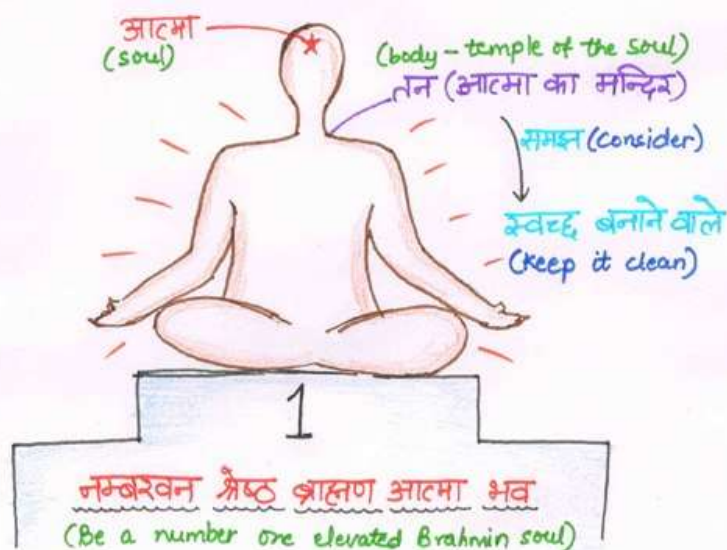 आत्मा
(soul)
(body - temple of the soul)
तन (आत्मा का मन्दिर)
समझ (consider)
स्वच्छ बनाने वाले
(keep it clean)
1
नम्बरवन श्रेष्ठ ब्राह्मण आत्मा भव
(Be a number one elevated Brahmin soul)